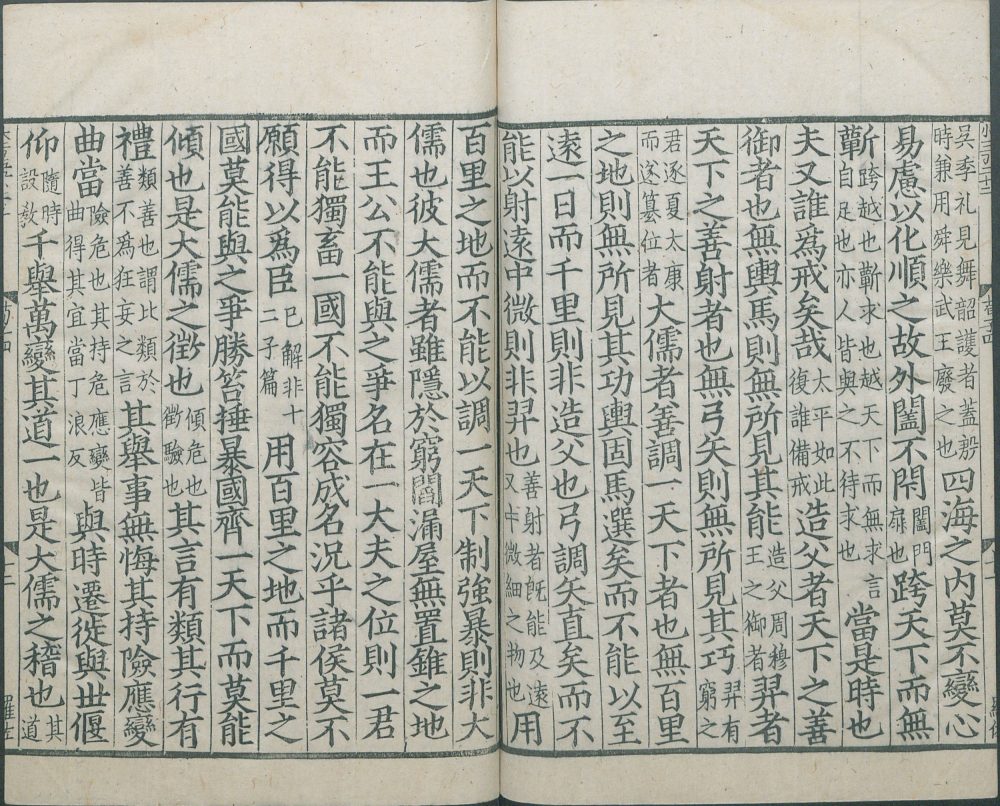 吳季札見舞韶護者蓋殷時兼用舜樂武王廢之也四海之内莫不變心
易慮以化順之故外闔不閇闔門扇也跨天下而無
蘄跨越也蘄求也越天下而無求言自足也亦人皆與之不待求也當是時也
夫又誰爲戒矣哉太平如此復誰備戒造父者天下之善
御者也無輿馬則無所見其能造父周穆王之御者羿者
天下之善射者也無弓矢則無所見其巧羿有窮之
君逐夏太康而遂篡位者大儒者善調一天下者也無百里
之地則無所見其功輿固馬選矣而不能以至
遠一日而千里則非造父也弓調矢直矣而不
能以射遠中微則非羿也善射者旣能及遠又中微細之物也用
百里之地而不能以調一天下制強暴則非大
儒也彼大儒者雖隱於窮閻漏屋無置錐之地
而王公不能與之爭名在一大夫之位則一君
不能獨畜一國不能獨容成名況乎諸侯莫不
願得以爲臣已解非十二子篇用百里之地而千里之
國莫能與之爭勝笞捶暴國齊一天下而莫能
傾也是大儒之徵也傾危也徵驗也其言有類其行有
禮類善也謂比類於禮善不爲狂妄之言其舉事無悔其持險應變
曲當險危也其持危應變皆曲得其宜當丁浪反與時遷徙與世偃
仰隨時設教千舉萬變其道一也是大儒之稽也其道